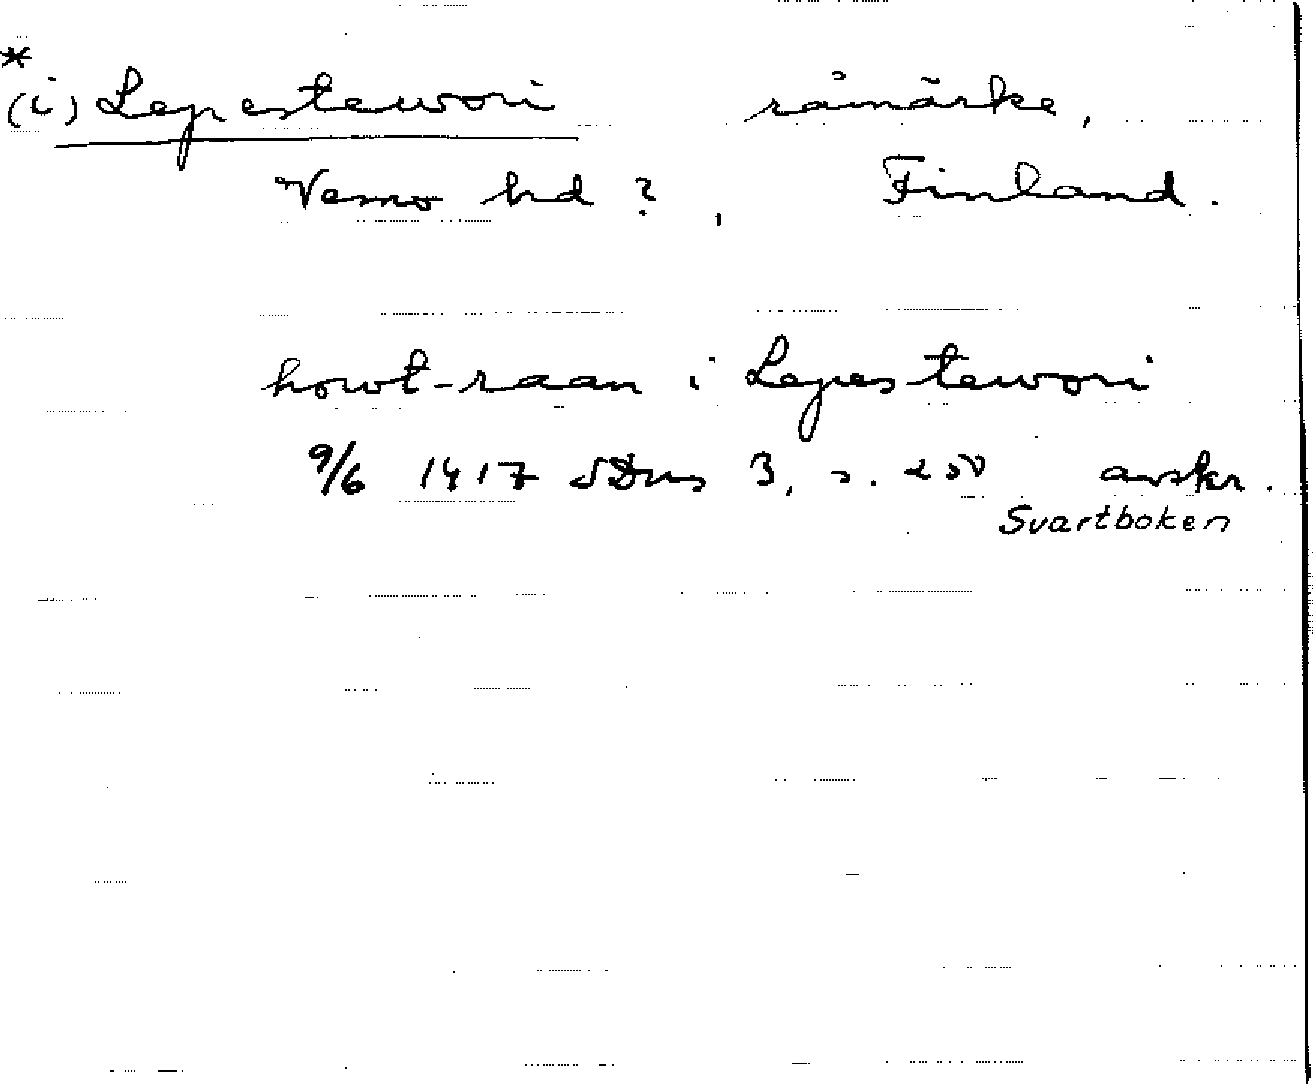 *
(i) Lepestewori råmärke,
Vemo hd ?, Finland.
howt-raan i Lepestewori
9/6 1417 SDns 3, s. 250 avskr.
Svartboken